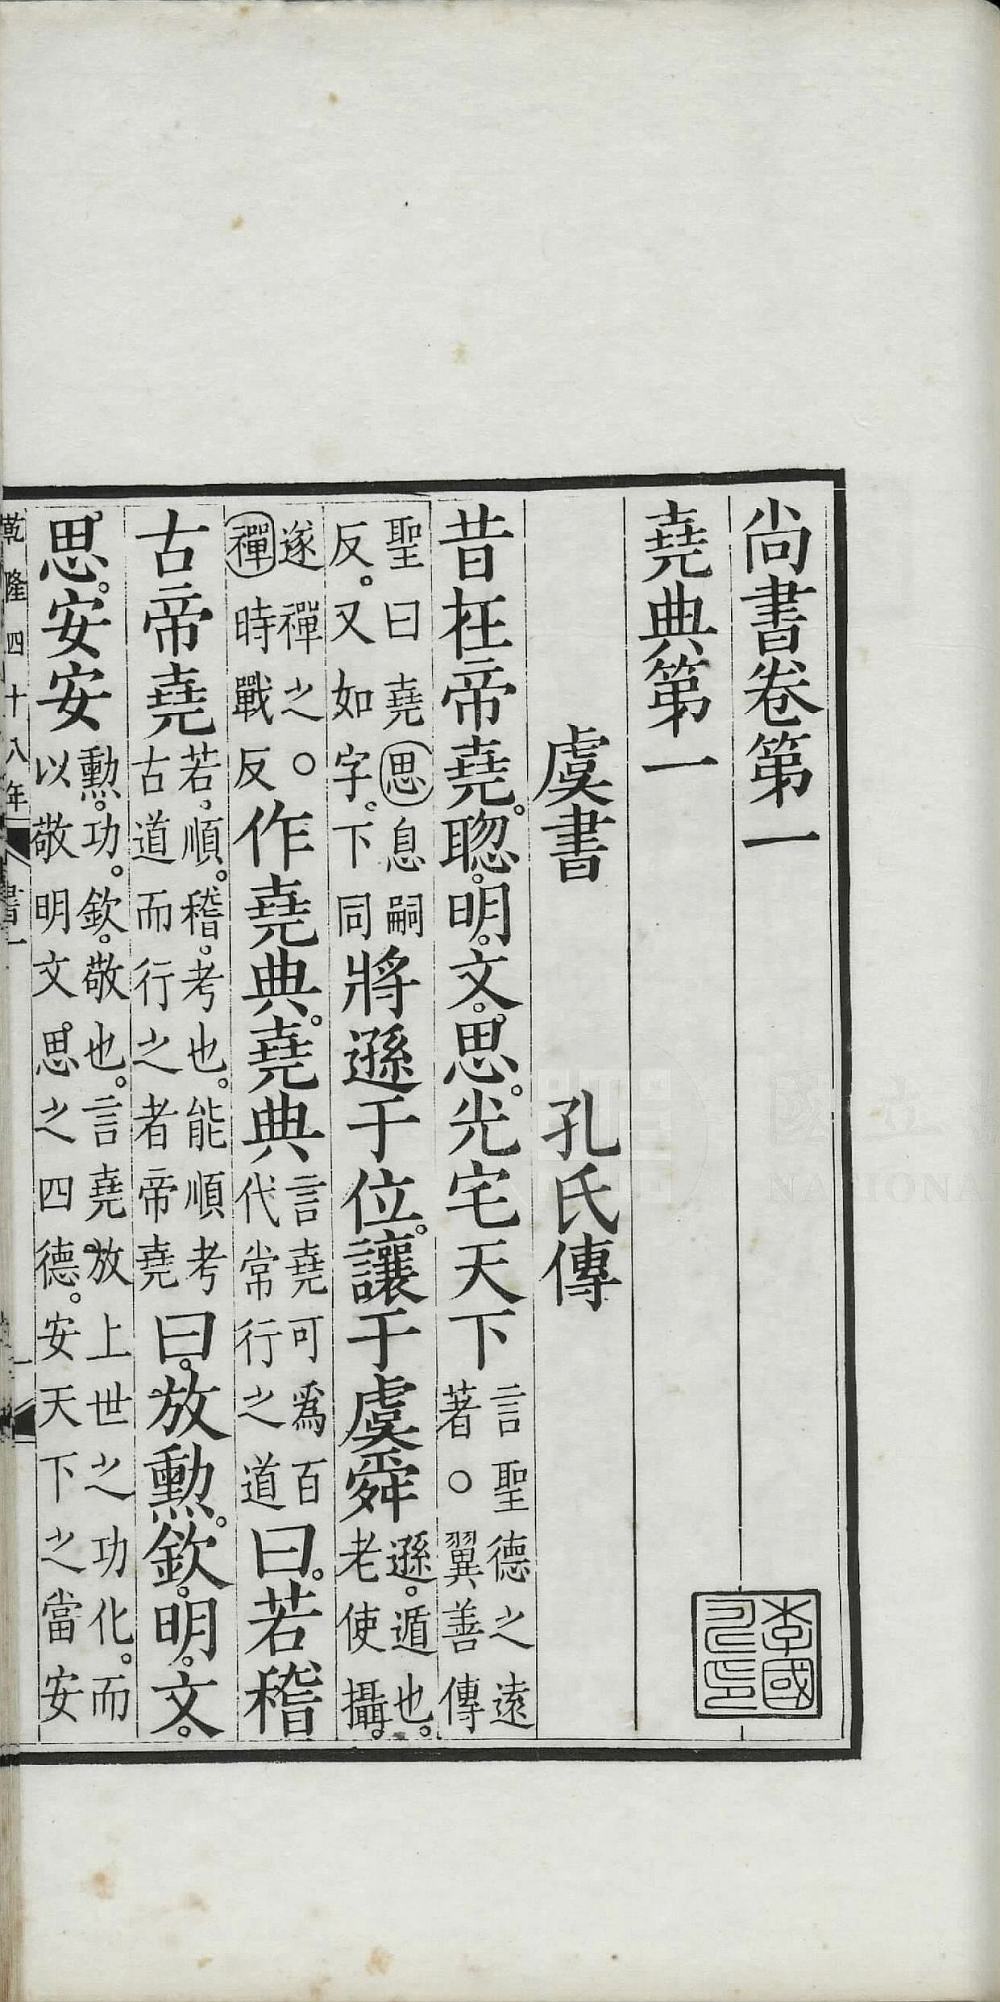 尚書卷第一
堯典第一
虞書 孔氏傳
昔在帝堯。聰。明。文。思。光宅天下言聖德之遠著。○翼善傳
聖曰堯思息嗣反。又如字。下同將遜于位。讓于虞舜遜。遁也。老使攝。
遂禪之。○禪時戰反作堯典。堯典言堯可爲百代常行之道曰。若稽
古帝堯若。順。稽。考也。能順考古道而行之者帝堯曰。放勳。欽。明。文。
思。安安勳。功。欽。敬也。言堯放上世之功化。而以敬明文思之四德。安天下之當安
乾隆四十八年
書一
李國
NATIONA
國立